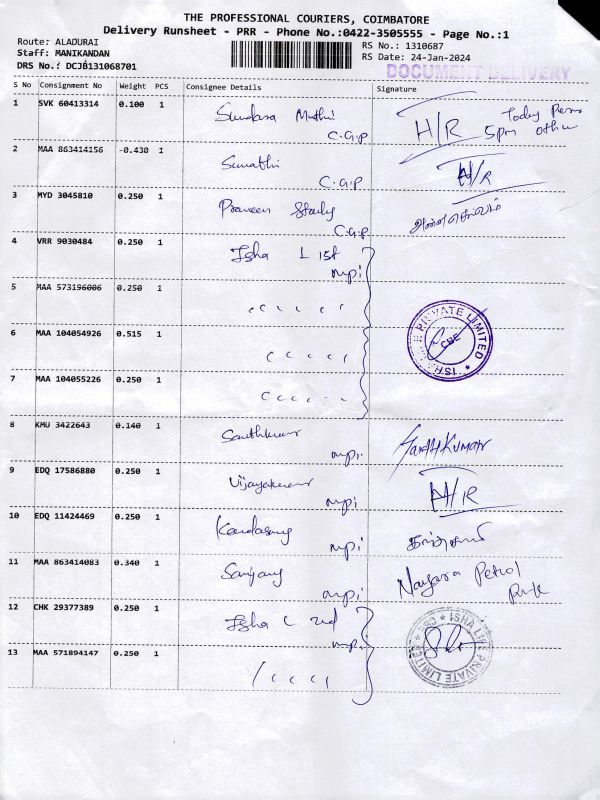 THE PROFESSIONAL COURIERS, COIMBATORE
Delivery Runsheet - PRR - Phone No.:0422-3505555 - Page No.:1
Route: ALADURAI
Staff: MANIKANDAN
DRS No.: DCJB131068701
RS No.: 1310687
RS Date: 24-Jan-2024
DOCUMENT DELIVERY
S No Consignment No Weight PCS Consignee Details Signature
1 SVK 60413314 0.100 1 Sundara Muthi C.G.P H/R Today 5pm
2 MAA 863414156 -0.430 1 Sumathi C.G.P H/R
3 MYD 3045810 0.250 1 Praveen C.G.P
4 VRR 9030484 0.250 1 Isha L 1st mpi
5 MAA 573196006 0.250 1
6 MAA 104054926 0.515 1
PRIVATE LIMITED ISHA CBE
7 MAA 104055226 0.250 1
8 KMU 3422643 0.140 1 mpi. KUMAR
9 EDQ 17586880 0.250 1 Vijayakumar mpi H/R
10 EDQ 11424469 0.250 1 mpi
11 MAA 863414083 0.340 1 Sanjay mpi Nayara Petrol
12 CHK 29377389 0.250 1 Isha L 2nd mpi.
ISHA LIFE PRIVATE LIMITED
13 MAA 571894147 0.250 1